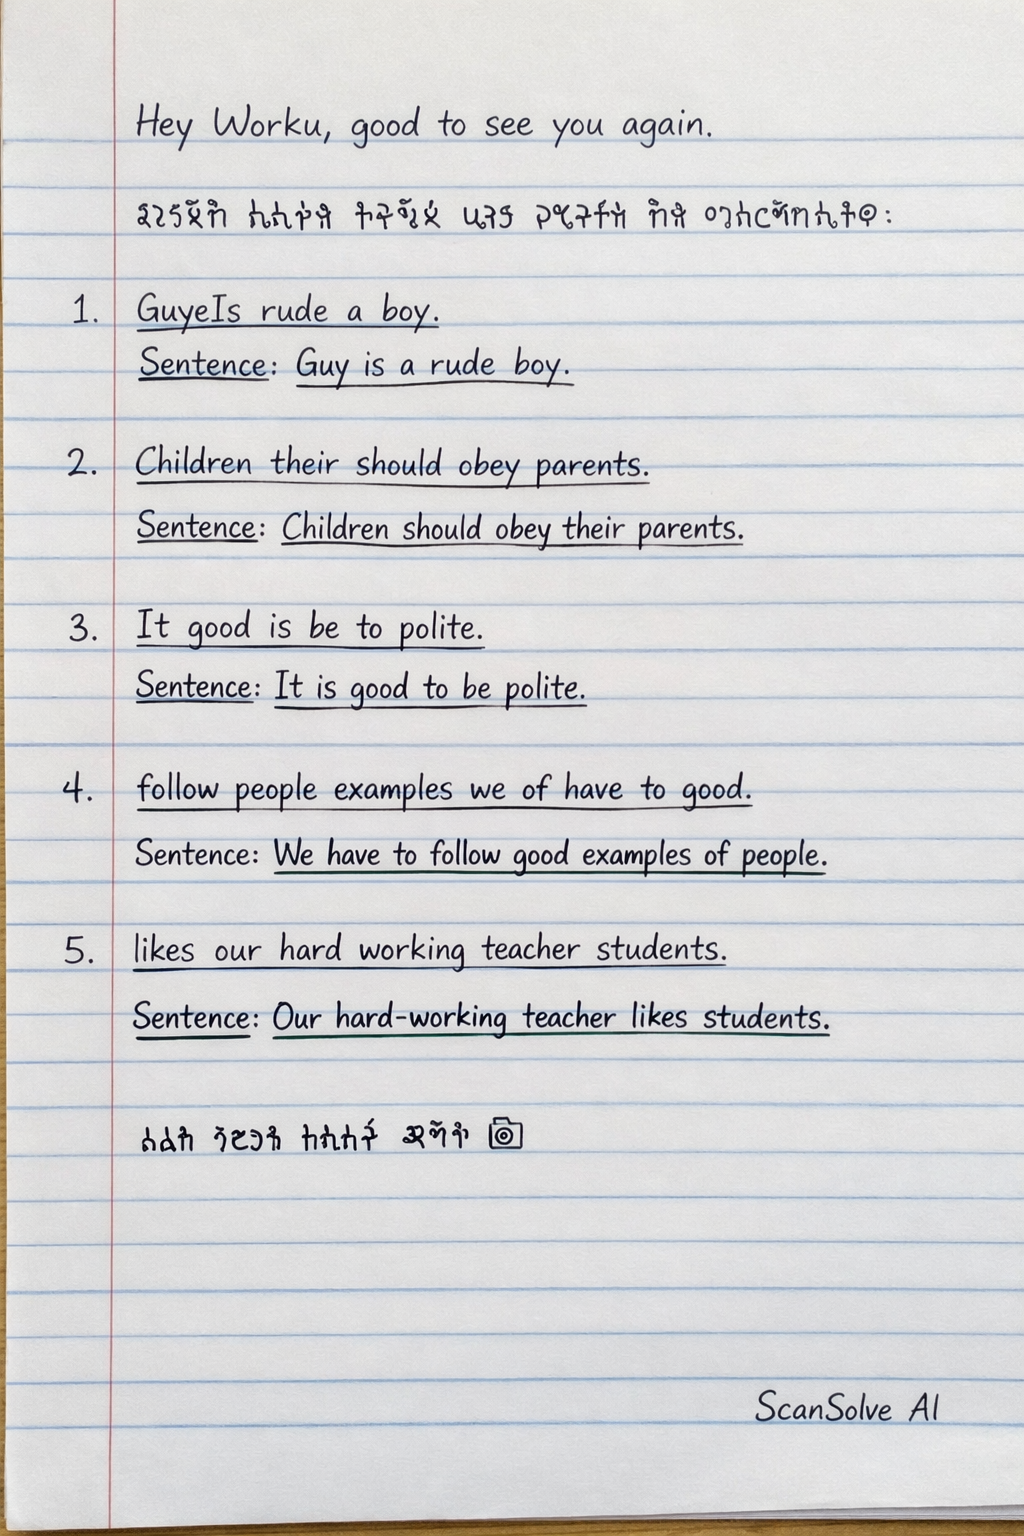 Hey Worku, good to see you again.
1. GuyeIs rude a boy.
Sentence: Guy is a rude boy.
2. Children their should obey parents.
Sentence: Children should obey their parents.
3. It good is be to polite.
Sentence: It is good to be polite.
4. follow people examples we of have to good.
Sentence: We have to follow good examples of people.
5. likes our hard working teacher students.
Sentence: Our hard-working teacher likes students.
ScanSolve AI